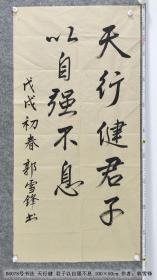 天行健君子
以自强不息
戊戌初春 郭雪锋书
B6078号书法 天行健 君子以自强不息 100×50cm 作者：郭雪锋